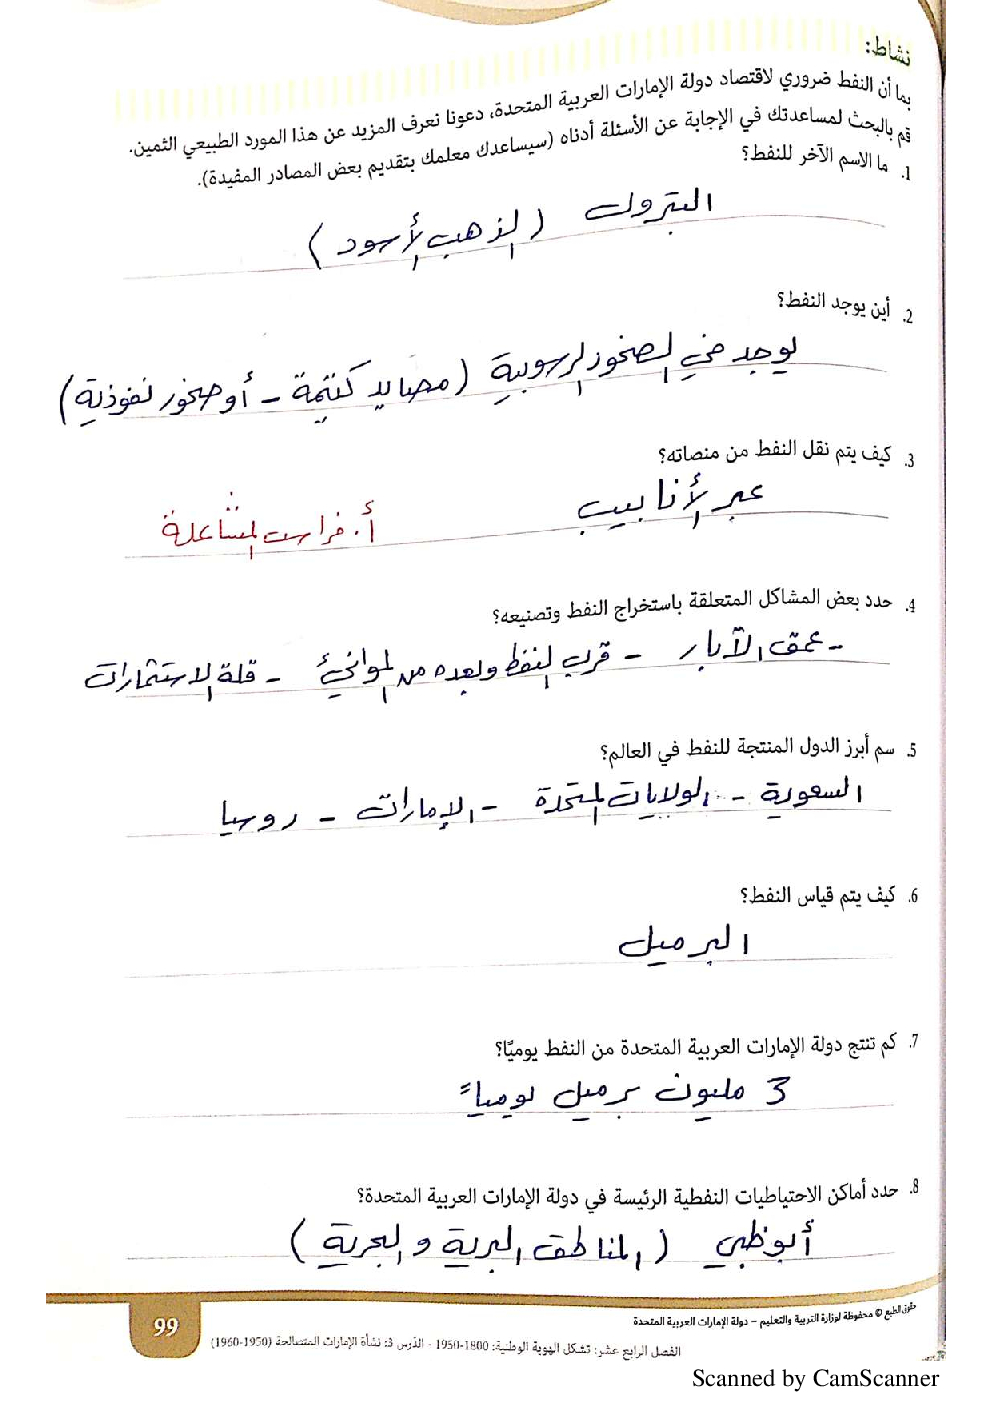 نشاط:
بما أن النفط ضروري لاقتصاد دولة الإمارات العربية المتحدة، دعونا نعرف المزيد عن هذا المورد الطبيعي الثمين.
قم بالبحث لمساعدتك في الإجابة عن الأسئلة أدناه (سيساعدك معلمك بتقديم بعض المصادر المفيدة).
1. ما الاسم الآخر للنفط؟
البترول (الذهب الأسود)
2. أين يوجد النفط؟
يوجد في الصخور الرسوبية (مصايد كتيمة - أو صخور نفوذية)
3. كيف يتم نقل النفط من منصاته؟
عبر الأنابيب
أ. فراس المشاعلة
4. حدد بعض المشاكل المتعلقة باستخراج النفط وتصنيعه؟
- عمق الآبار - قرب النفط وبعده من الموانئ - قلة الاستثمارات
5. سم أبرز الدول المنتجة للنفط في العالم؟
السعودية - الولايات المتحدة - الإمارات - روسيا
6. كيف يتم قياس النفط؟
البرميل
7. كم تنتج دولة الإمارات العربية المتحدة من النفط يوميًا؟
3 مليون برميل يومياً
8. حدد أماكن الاحتياطيات النفطية الرئيسة في دولة الإمارات العربية المتحدة؟
أبوظبي (المناطق البرية والبحرية)
حقوق الطبع © محفوظة لوزارة التربية والتعليم – دولة الإمارات العربية المتحدة
الفصل الرابع عشر: تشكل الهوية الوطنية: 1800-1950 - الدرس 3: نشأة الإمارات المتصالحة (1950-1960)
99
Scanned by CamScanner